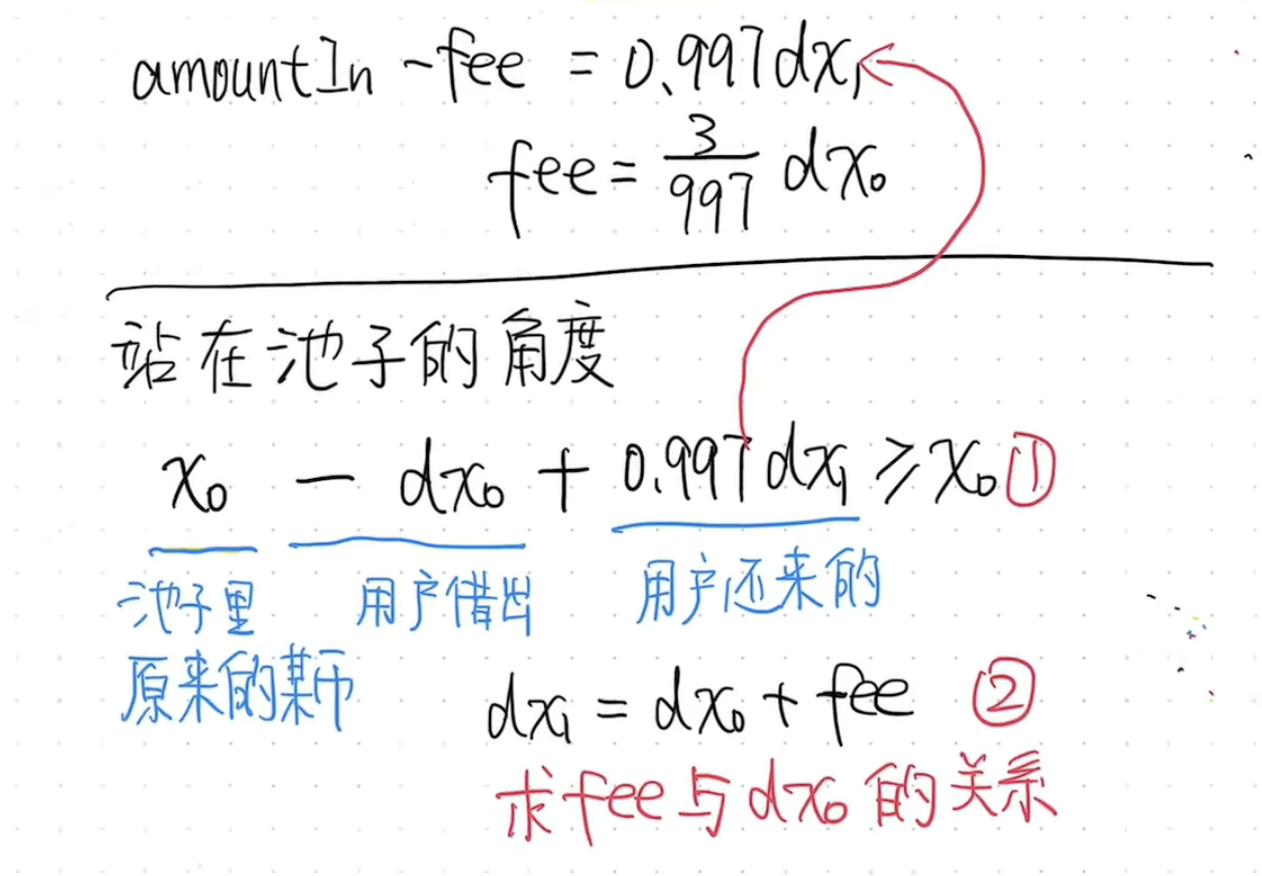 amountIn - fee = 0.997dx₁
fee = 3/997 dx₀
站在池子的角度
x₀ - dx₀ + 0.997dx₁ ≥ x₀ ①
池子里 用户借出 用户还来的
原来的某币
dx₁ = dx₀ + fee ②
求fee与dx₀的关系